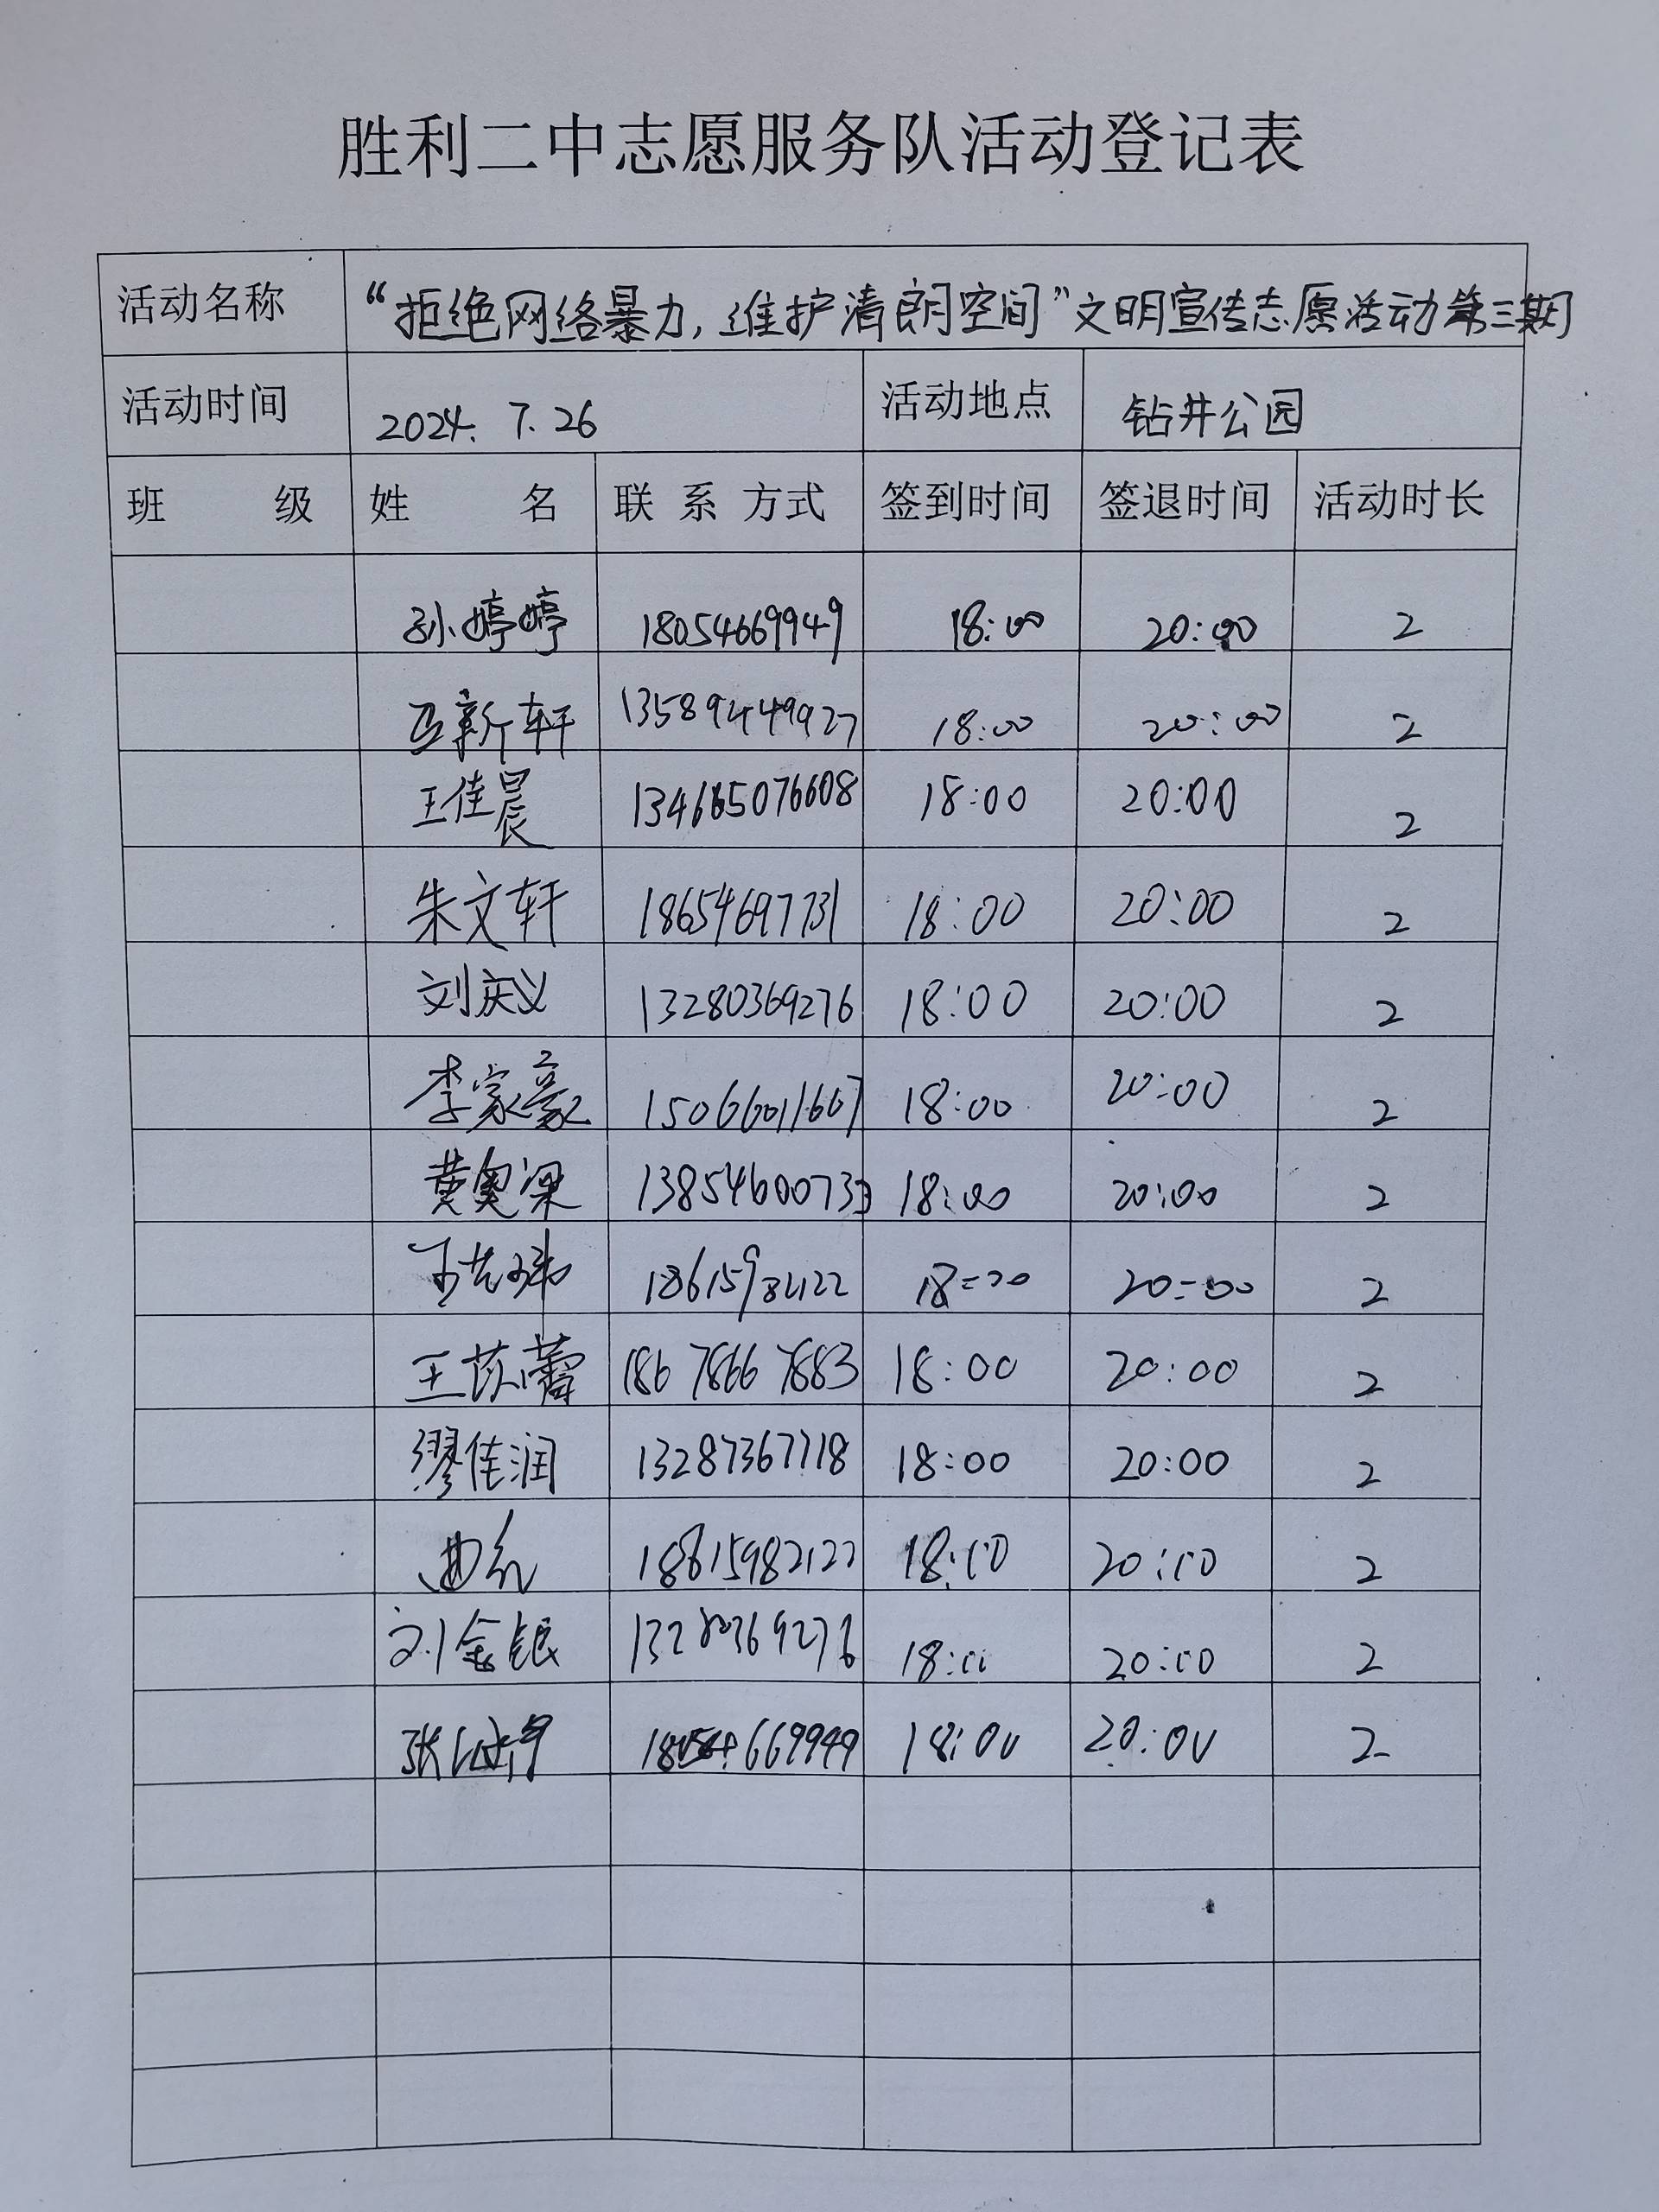 胜利二中志愿服务队活动登记表
活动名称 “拒绝网络暴力,维护清朗空间”文明宣传志愿活动第三期
活动时间 2024.7.26 活动地点 钻井公园
班 级 姓 名 联系方式 签到时间 签退时间 活动时长
孙婷婷 18054669949 18:00 20:00 2
新轩 13589449927 18:00 20:00 2
王佳晨 18:00 20:00 2
朱文轩 18654697731 18:00 20:00 2
刘庆义 13280369276 18:00 20:00 2
李家豪 15066011667 18:00 20:00 2
黄奥深 13854600733 18:00 20:00 2
18:00 20:00 2
王 18678667883 18:00 20:00 2
缪佳润 13287367718 18:00 20:00 2
曲 18615982122 18:00 20:00 2
刘金银 13280369276 18:00 20:00 2
张 18054669949 18:00 20:00 2